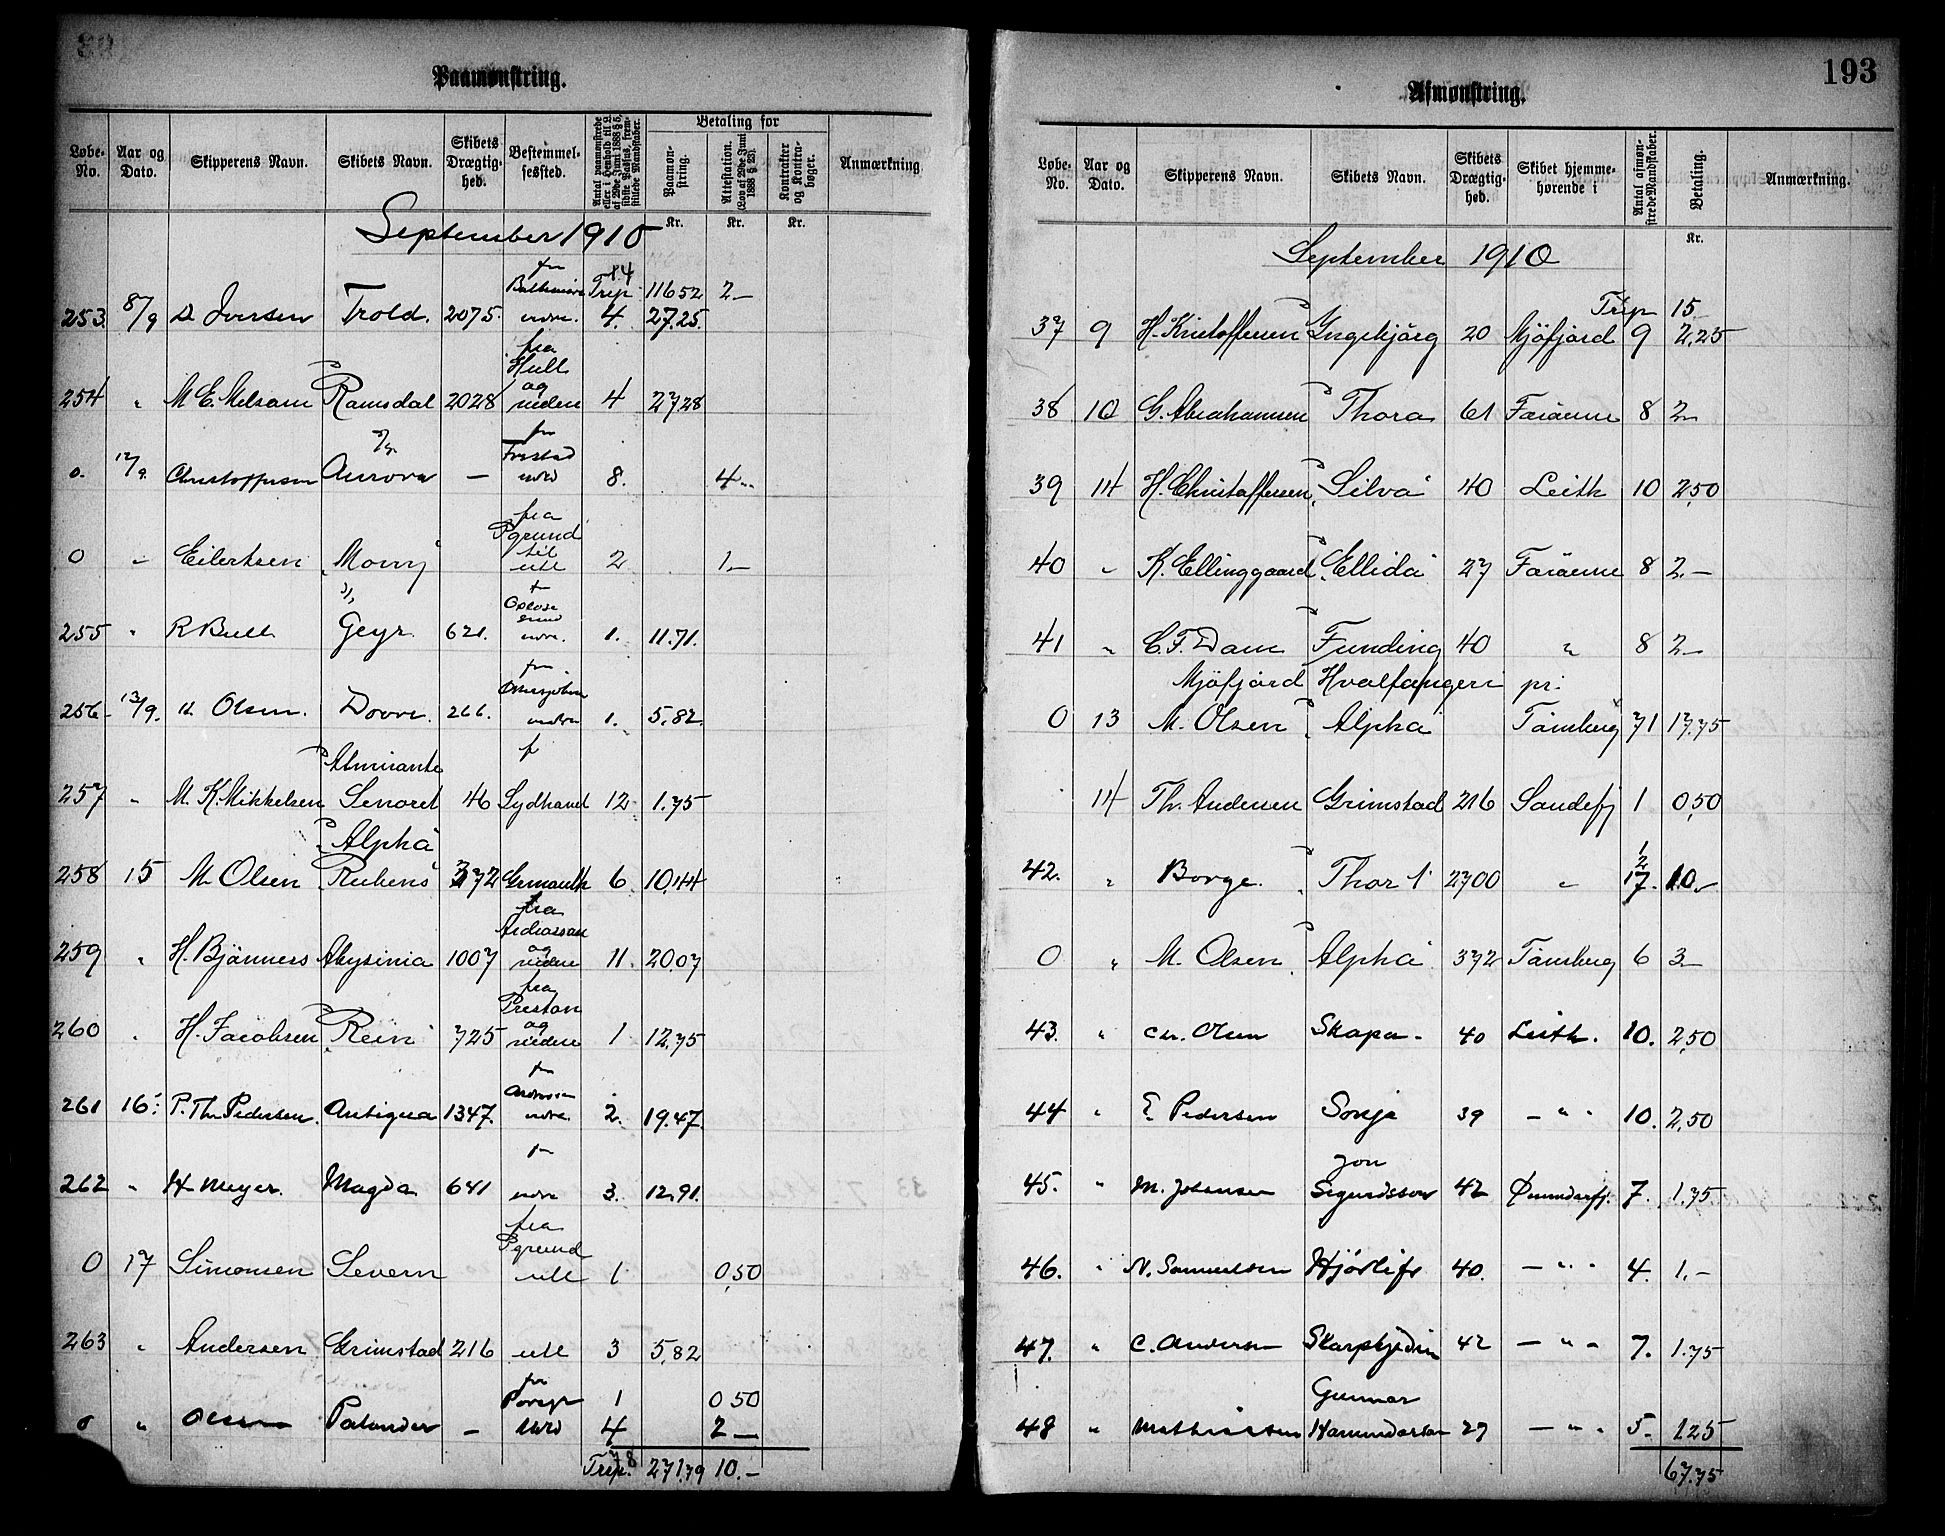 Paamønstring.
Løbe-No. Aar og Dato. Skipperens Navn. Skibets Navn. Skibets Drægtighed. Bestemmelsessted. Antal paamønstrede eller i Henhold til L. af 29de Juni 1888 § 5, sidste Passus, fremstillede Mandskaber. Betaling for Paamønstring. Attestation. (Lov af 29de Juni 1888 § 23). Kontrakter og Kontrabøger. Anmærkning
Kr. Kr. Kr.
September 1910
fra 14
Baltimore Trip 116 52 2 —
253. 8/9 D. Iversen Trold. 2075. vidre. 4. 27.25.
fra
Hull
og
254 " M. E. Melsom "Ramsdal 2028 videre 4 27,28
fra
Frestad
0. 12/9. Christoffersen Aurora — 8. 4 "
fra
Pgrund
til
0 " Eilertsen "Mowij" ute 2 1.—
255 " R Bull Geyr. 621. vidre. 1. 11.71.
fra
256 13/9. Olsen. Dovre. 266. 1. 5.82.
"Almirante
257 " M. K. Mikkelsen Senoret 46 Sydhavet 12 1.75
"Alpha"
258 15 M. Olsen "Rubens" 372 6 10,44
fra
Ardrossan
og
259 " H. Bjönness Abysinia 1007 videre 11. 20,07
fra
Preston
og
260 " H. Jacobsen "Rein" 725 videre 1 12,75
261 16 P. Th. Pedersen. Antigua 1347. vidre 2. 19.47.
262 " H Meyer. Magda 641 vidre 3. 12.91.
fra
Pgrund
0 17 Simonsen Severn ute 1 0,50
263 " Andersen Grimstad 216 ute 3 5,82
fra
Porsgr 1 0 50
0 " Olsen Palander — 4 2 —
78
Trip. 271.79 10.—
193
Afmønstring.
Løbe-No. Aar og Dato. Skipperens Navn. Skibets Navn. Skibets Drægtighed. Skibet hjemmehørende i Antal afmønstrede Mandskaber. Betaling. Anmærkning.
Kr.
September 1910
Trip 15
37 9 H. Kristoffersen "Ingebjörg 20 Mjöfjord 9 2,25
38 10 G. Abrahamsen "Thora 61 Färöerne 8 2 —
39 14 H. Christoffersen "Silva" 40 Leith 10 2,50
40 " K. Ellinggaard "Ellida" 27 Färöerne 8 2.—
41 " C. F. Dam "Funding 40 " 8 2 —
Mjöfjord Hvalfangeri pr:
0 13 M. Olsen "Alpha" Tönsberg 71 17,75
14 Th. Andersen Grimstad 216 Sandefj 1 0,50
1
2
42. " Borge. "Thor I" 2700 " 17. 10.—
0 " M. Olsen "Alpha" 372 Tönsberg 6 3 —
43. " Chr. Olsen Skapa. 40 Leith. 10. 2,50
44 " E. Pedersen Sonja 39 — " " 10. 2,50
Jon
45. " M. Johansen Sigurdsson 42 Önundarfj. 7. 1.75
46. " N. Samuelsen Hjörleifr 40. — " " 4. 1.—
47. " C. Andersen Skarphjedin 42 — " — 7. 1.75
Gunnar
48 " Mathiassen 27 — " " 5. 1.25
67.75